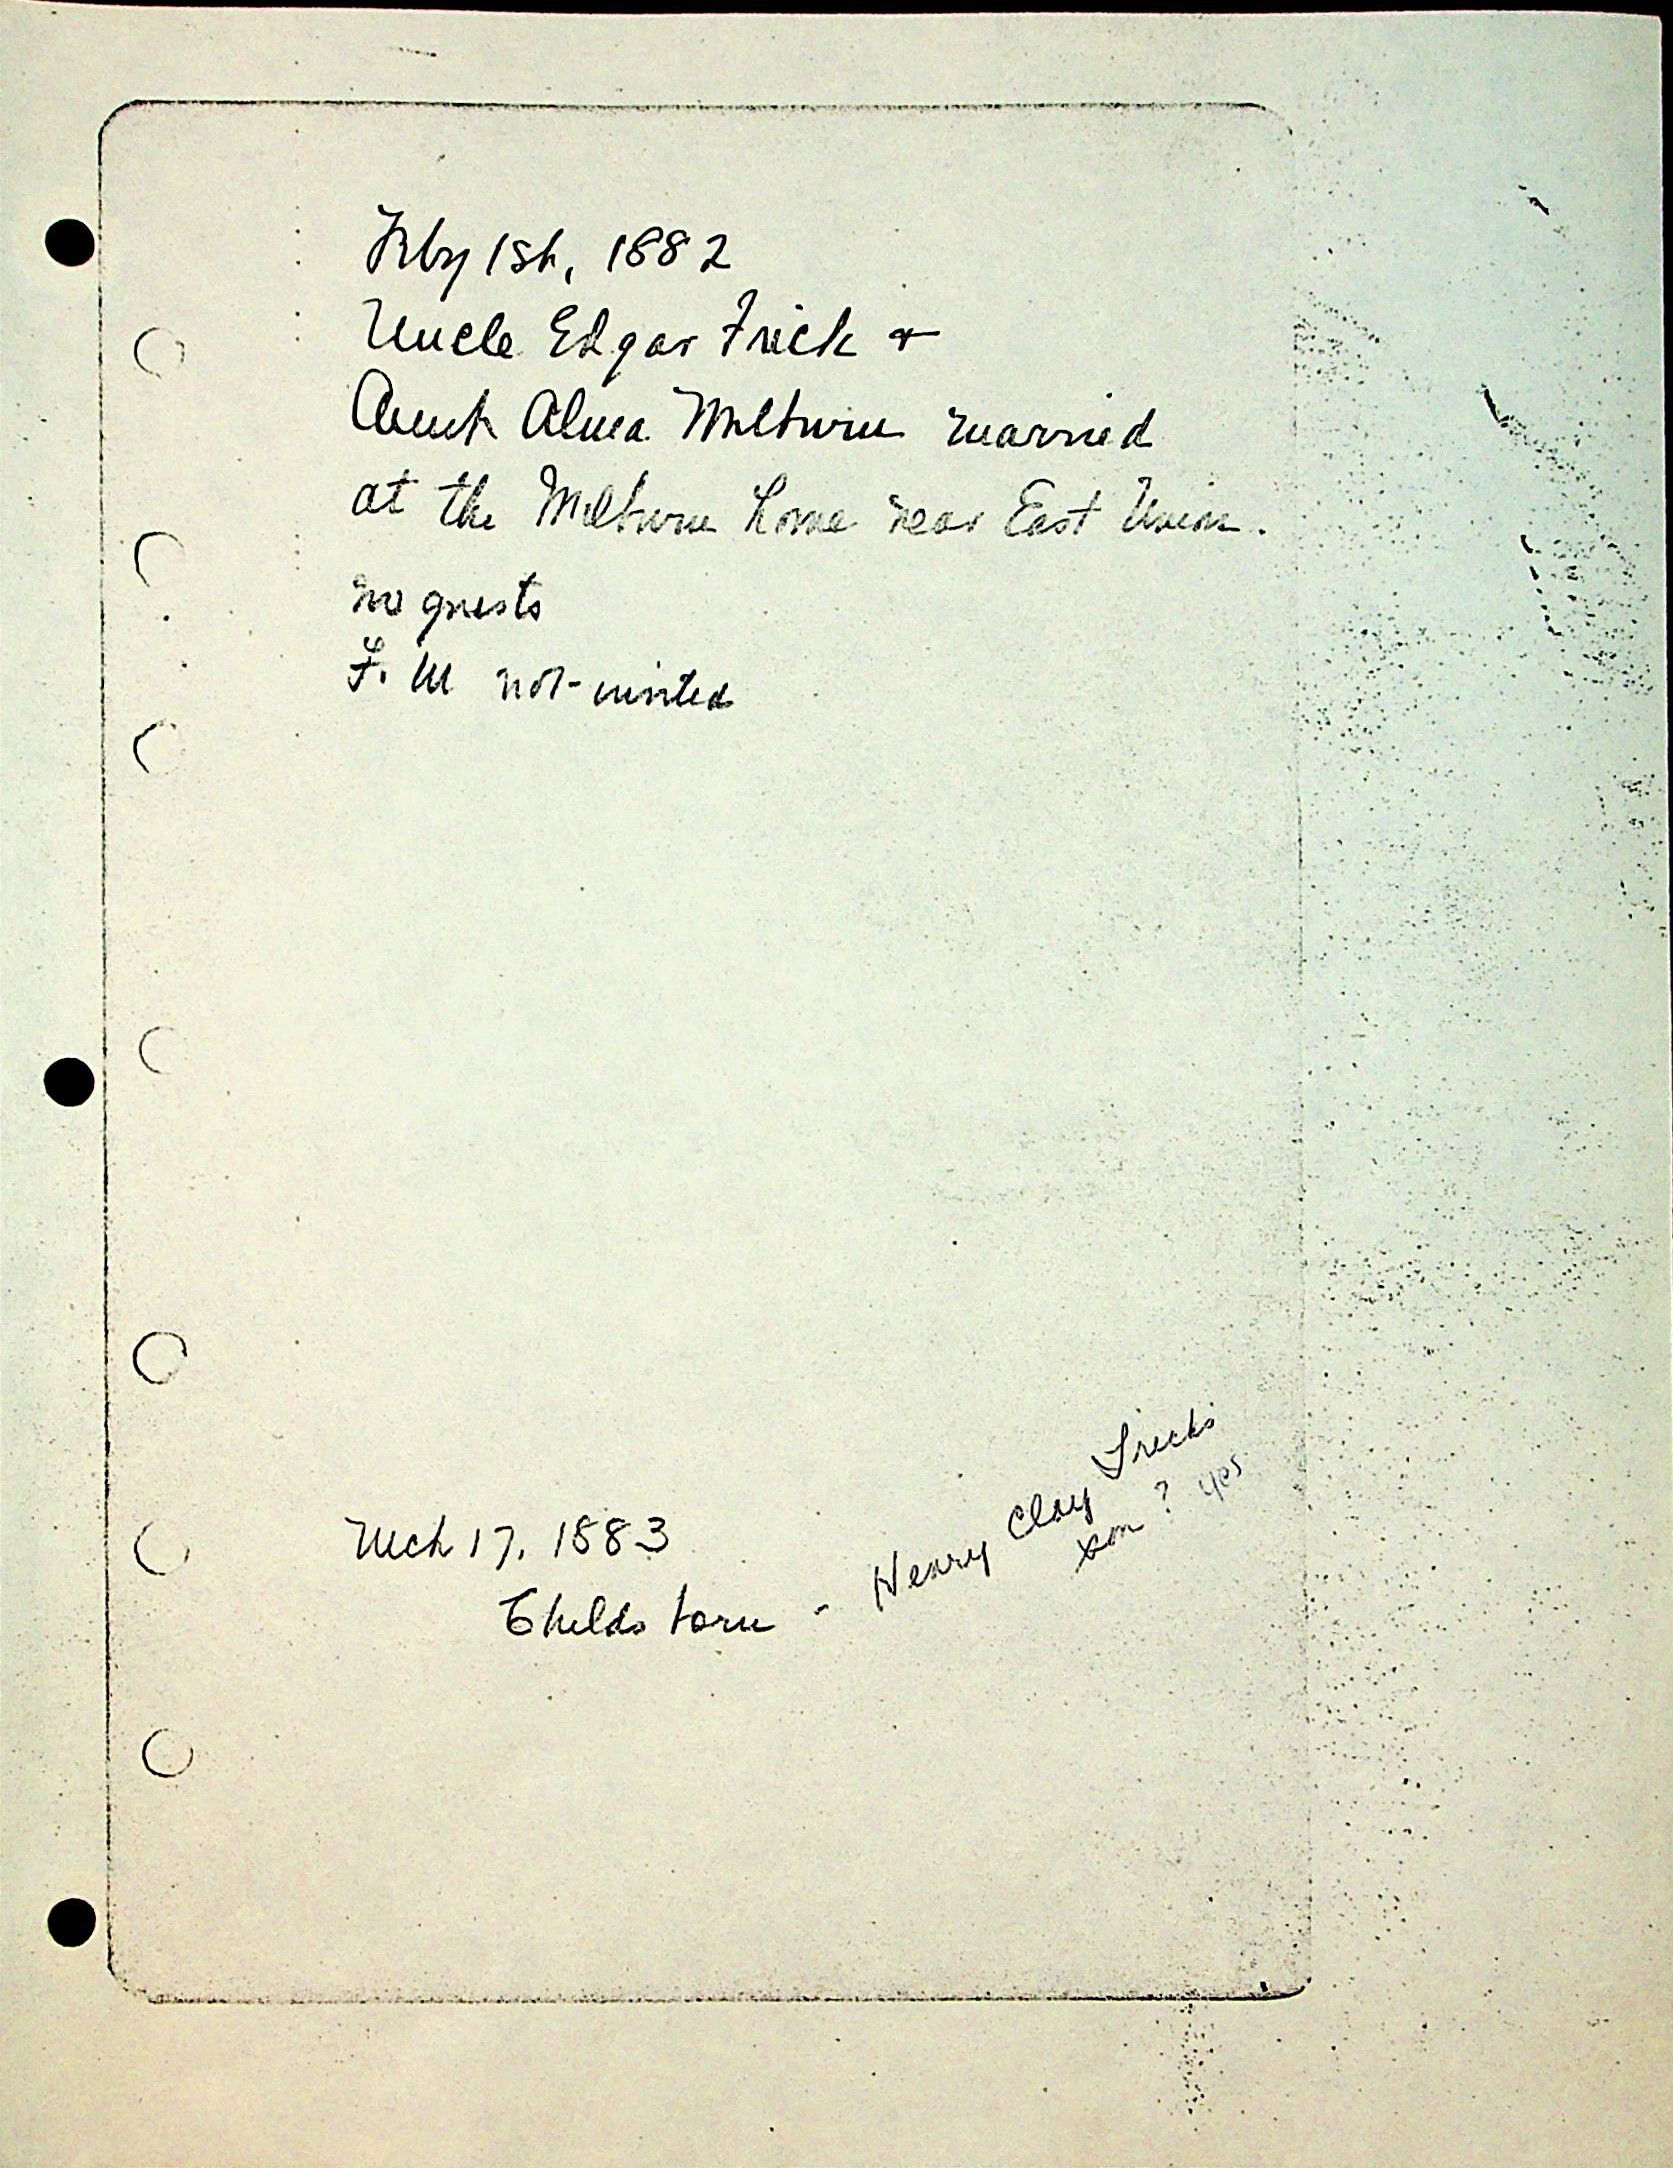 Feby 1st, 1882
Uncle Edgar Frick +
Aunt Alma Milturn married
at the Milturn home near East Union.
no guests
F. M not invited
Mch 17, 1883
Childs born - Henry Clay Fricks
son? yes